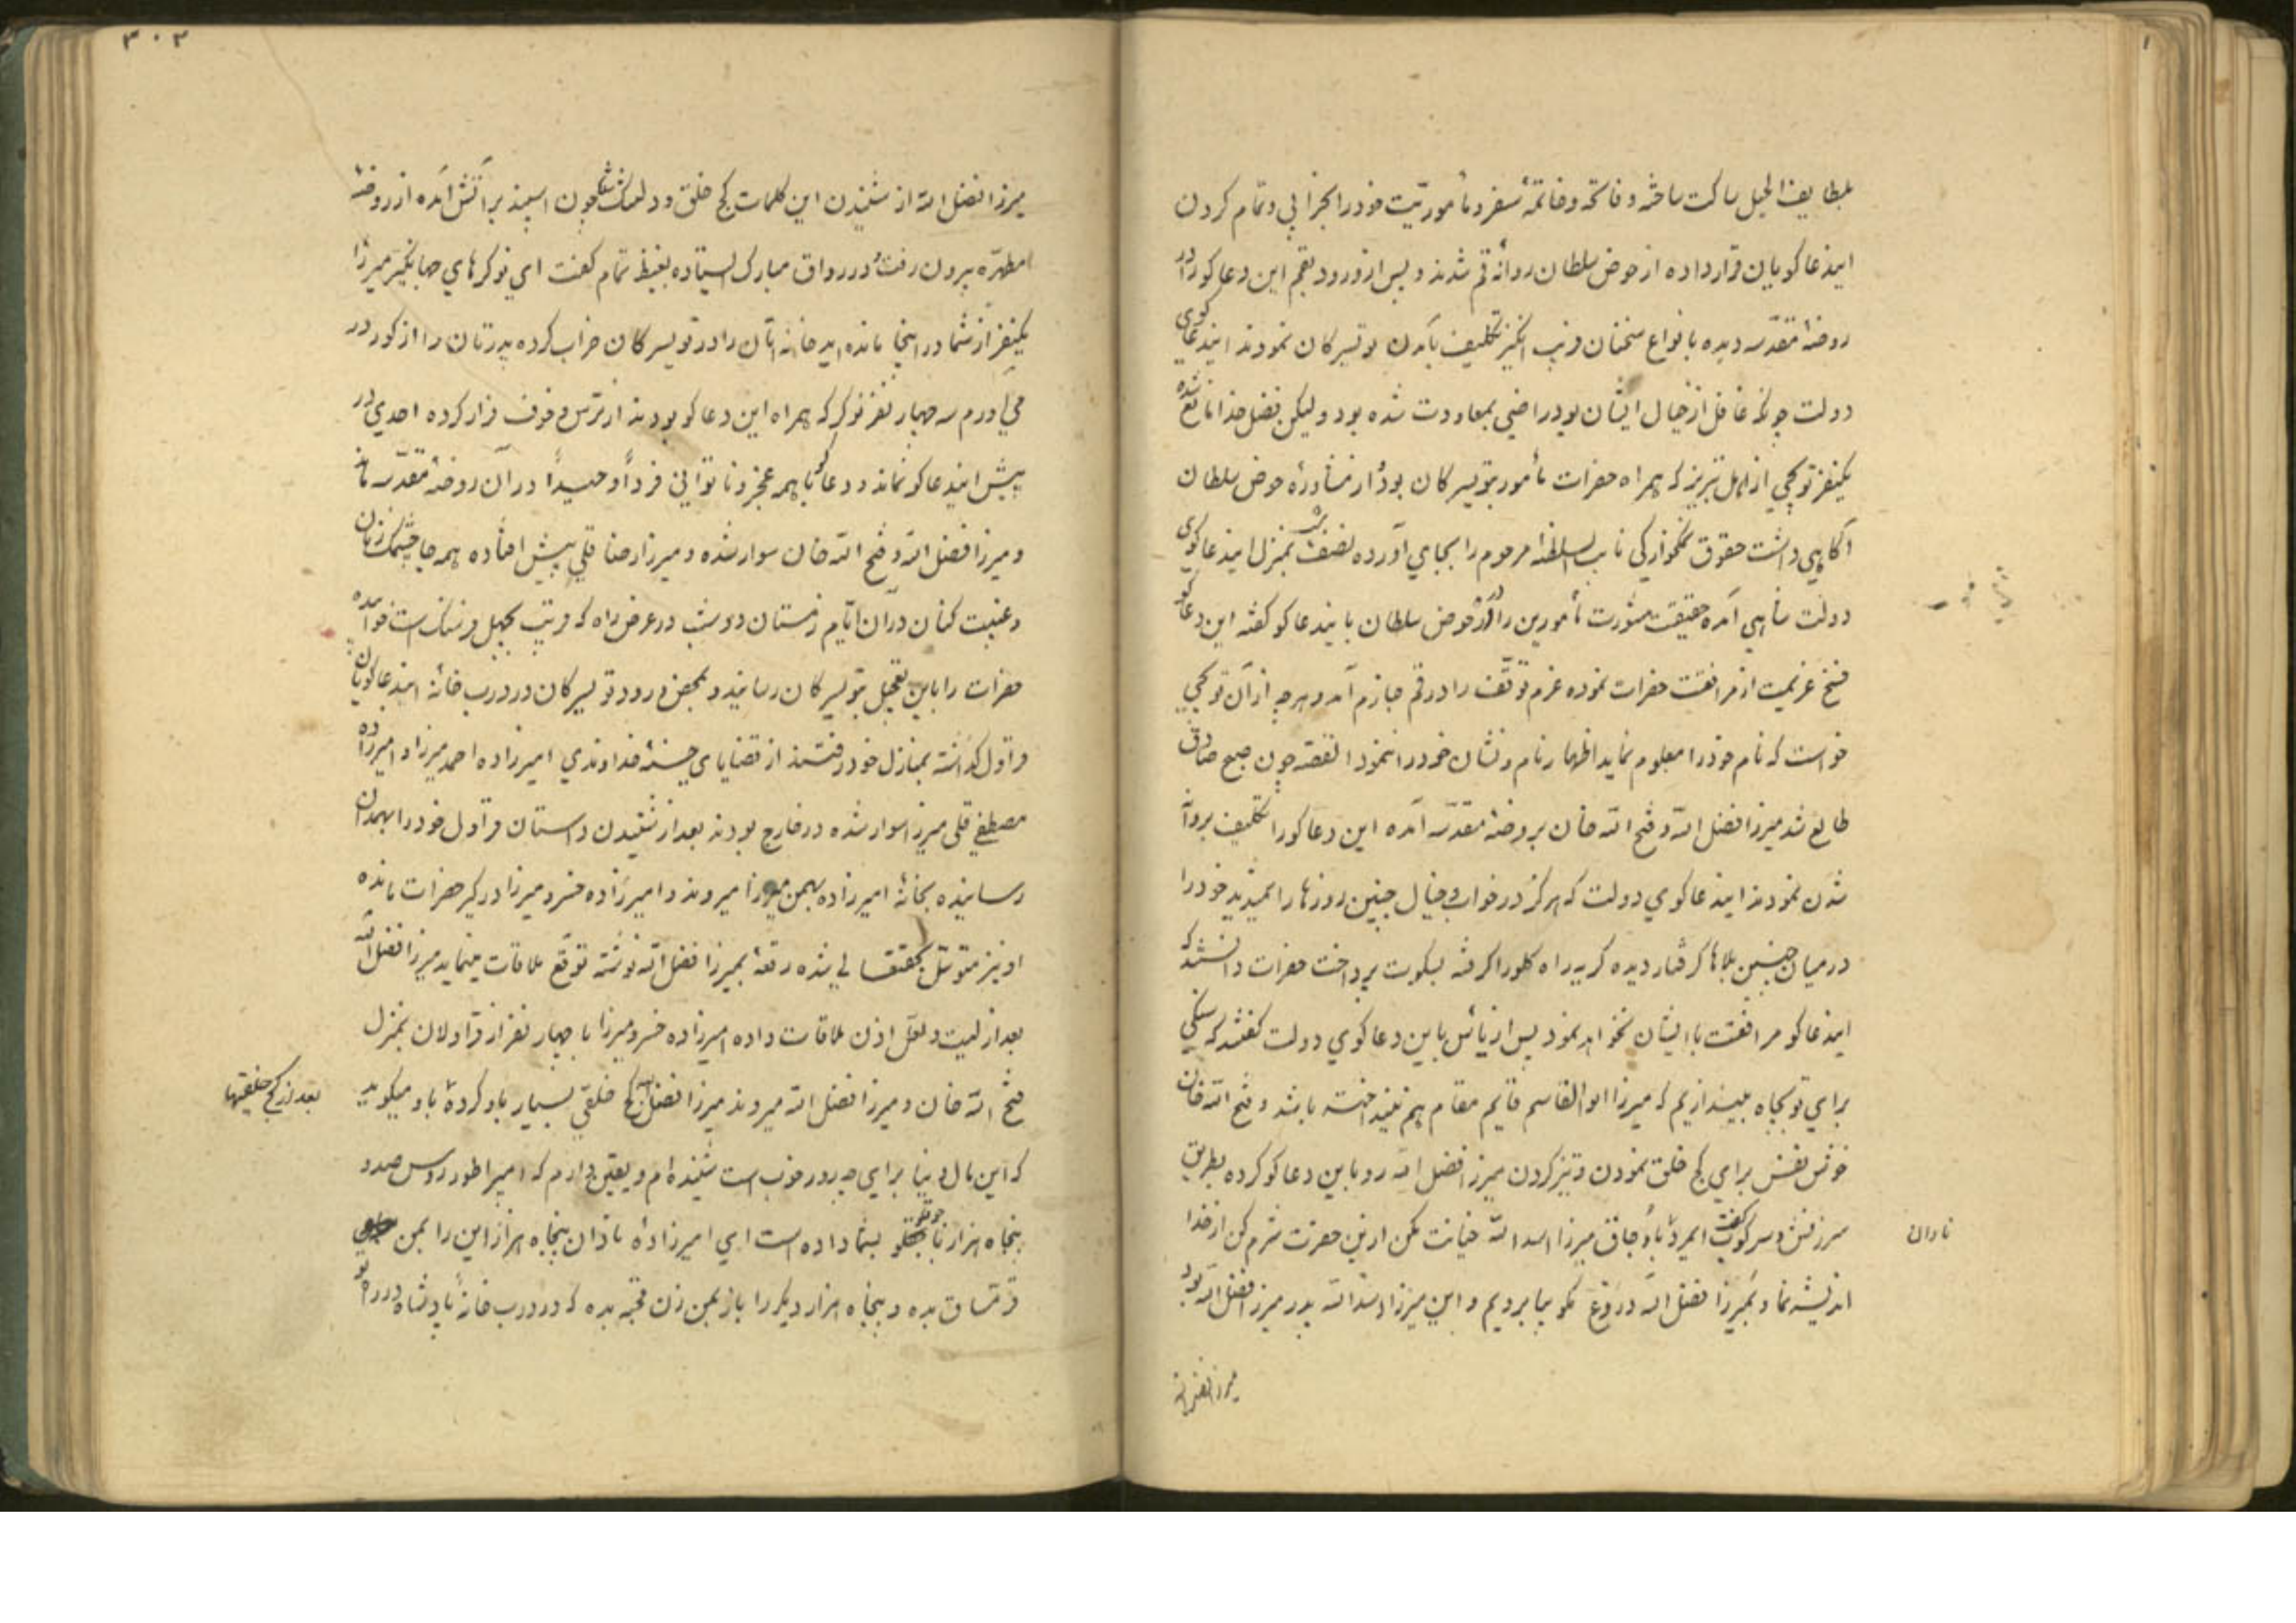 بلطایف الحیل ساکت ساخته و فاتحه و خاتمهٔ سفر و مأموریّت خود را بخرابی و تمام کردن
ایندعاکویان قرار داده از حوض سلطان روانهٔ قم شدند و پس از ورود بقم این دعاکو را در
روضهٔ مقدّسه دیده بانواع سخنان فریب انکیز تکلیف بآمدن تویسرکان نمودند ایندعاکوی
دولت چونکه غافل از خیال ایشان بود راضی بمعاودت شده بود ولیکن فضل خدا مانع شده
یکنفر توپچی از اهل تبریز که همراه حضرات مأمور بتویسرکان بود از مشاورهٔ حوض سلطان
آکاهی داشت حقوق نمکخوارکی نایب السلطنهٔ مرحوم را بجای آورده نصف شب بمنزل ایندعاکوی
دولت شاهی آمده حقیقت مشورت مأمورین را در حوض سلطان بایندعاکو کفته این دعاکو
فسخ عزیمت از مرافقت حضرات نموده عزم توقّف را در قم جازم آمد و هرچه از آن توپچی
خواست که نام خود را معلوم نماید اظهار نام و نشان خود را ننمود القصّه چون صبح صادق
طالع شد میرزا فضل الله و فتح الله خان بروضهٔ مقدّسه آمده این دعاکو را تکلیف بروانه
شدن نمودند ایندعاکوی دولت که هرکز در خواب و خیال چنین روزها را نمیدید خود را
در میان چنین بلاها کرفتار دیده کریه راه کلو را کرفته بسکوت پرداخت حضرات دانستند که
ایندعاکو مرافقت با ایشان نخواهد نمود پس از یأس باین دعاکوی دولت کفتند که سنکی
برای تو بچاه بیندازیم که میرزا ابوالقاسم قایم مقام هم نینداخته باشد و فتح الله خان
خوش نفس برای کج خلق نمودن و تیز کردن میرزا فضل الله رو باین دعاکو کرده بطریق
سرزنش و سرکوب کفت ایمرد با وجاق میرزا اسدالله خیانت مکن ازین حضرت شرم کن از خدا
اندیشه نما و بمیرزا فضل الله دروغ مکو بیا برویم و این میرزا اسدالله پدر میرزا فضل الله بود
نادان
میرزا فضل الله
۳۰۲
میرزا فضل الله از شنیدن این کلمات کج خلق و دلتنک شده چون اسپند بر آتش آمده از روضهٔ
مطهّره بیرون رفته در رواق مبارک ایستاده بغیظ تمام کفت ای نوکرهای جهانکیر میرزا
یکنفر از شما در اینجا مانده اید خانه اتان را در تویسرکان خراب کرده پدرتان را از کور در
می آورم سه چهار نفر نوکر که همراه این دعاکو بودند از ترس و خوف فرار کرده احدی در
پیش ایندعاکو نماند و دعاکو با همه عجز و ناتوانی فرداً وحیداً در آن روضهٔ مقدّسه ماند
و میرزا فضل الله و فتح الله خان سوار شده و میرزا رضا قلی پیش افتاده همه جا چشمک زنان
و غیبت کنان در آن ایّام زمستان دو شب در عرض راه که قریب بچهل فرسنک است خوابیده
حضرات را باین تعجیل بتویسرکان رسانیده و بمحض ورود تویسرکان در درب خانهٔ ایندعاکویان
قراول کذاشته بمنازل خود رفتند از قضایای حسنهٔ خداوندی امیرزاده احمد میرزا و امیرزاده
مصطفی قلی میرزا سوار شده در خارج بودند بعد از شنیدن داستان قراول خود را بهمدان
رسانیده بخانهٔ امیرزاده بهمن میرزا میروند و امیرزاده خسرو میرزا در کیر حضرات مانده
او نیز متوسّل بحقتعالی شده رقعهٔ بمیرزا فضل الله نوشته توقّع ملاقات مینماید میرزا فضل الله
بعد از لیت و لعلّ اذن ملاقات داده امیرزاده خسرو میرزا با چهار نفر از قراولان بمنزل
فتح الله خان و میرزا فضل الله میروند میرزا فضل الله کج خلقی بسیار باو کرده باو میکوید
بعد از کج خلقیها
که این مال دنیا برای چه روز خوب است شنیده ام و یقین دارم که امپراطور روس صد و
پنجاه هزار باجقلو بشما داده است ای امیرزادهٔ نادان پنجاه هزار این را بمن
قرمساق بده و پنجاه هزار دیکر را باز بمن زن قحبه بده که در درب خانهٔ پادشاه در راه تو